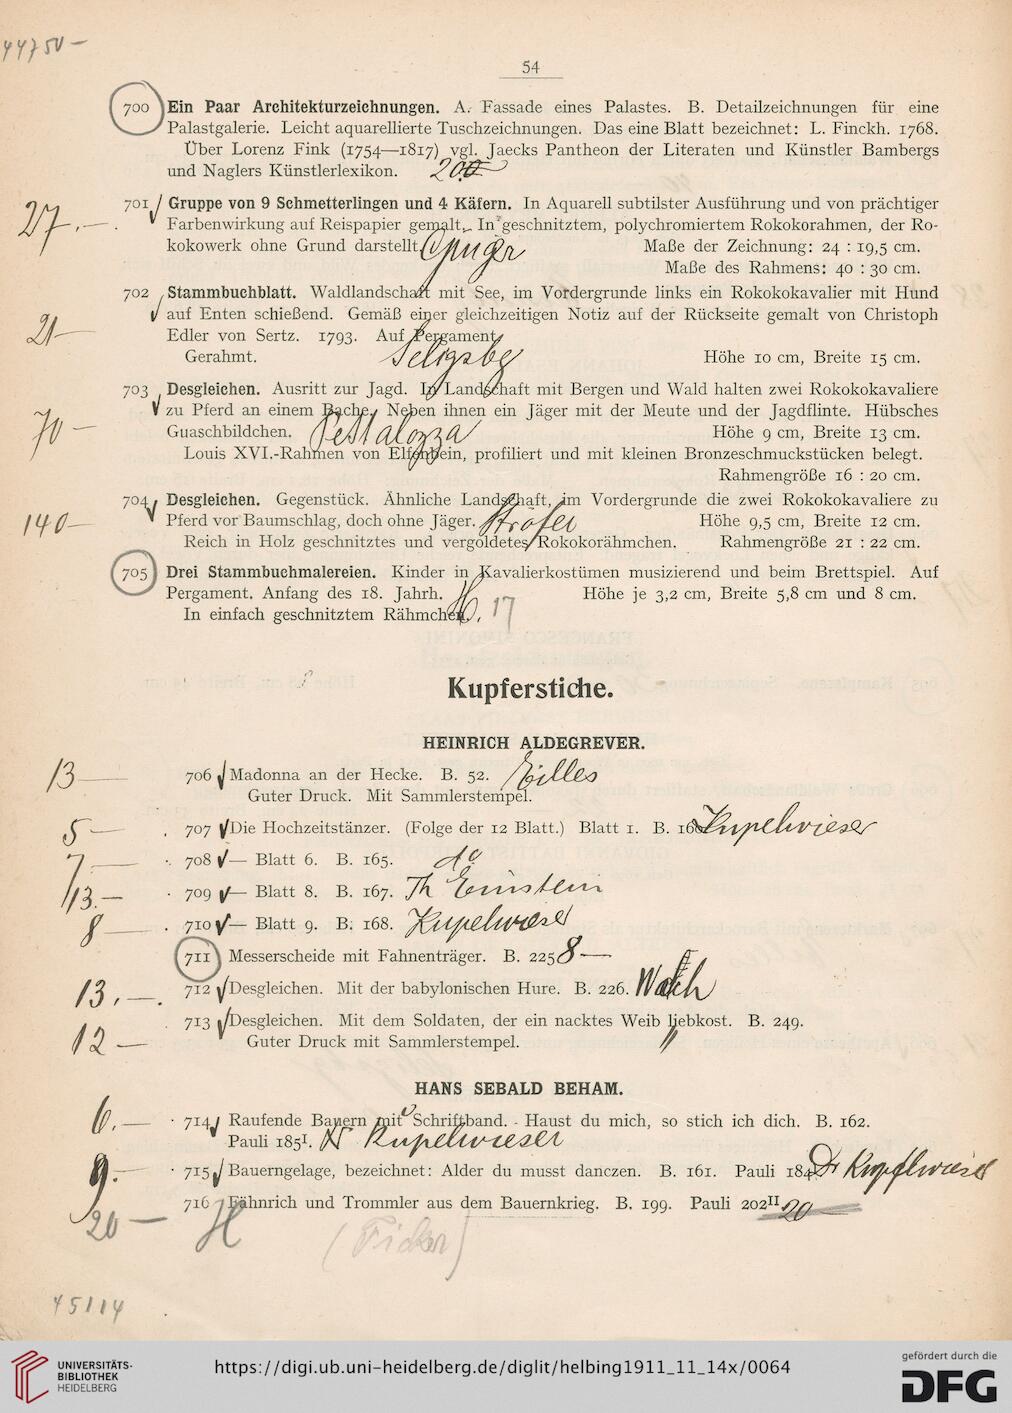 44750 —
54
700 Ein Paar Architekturzeichnungen. A. Fassade eines Palastes. B. Detailzeichnungen für eine
Palastgalerie. Leicht aquarellierte Tuschzeichnungen. Das eine Blatt bezeichnet: L. Finckh. 1768.
Über Lorenz Fink (1754—1817) vgl. Jaecks Pantheon der Literaten und Künstler Bambergs
und Naglers Künstlerlexikon. 200
701 Gruppe von 9 Schmetterlingen und 4 Käfern. In Aquarell subtilster Ausführung und von prächtiger
27.— Farbenwirkung auf Reispapier gemalt. In geschnitztem, polychromiertem Rokokorahmen, der Ro-
kokowerk ohne Grund darstellt. Maße der Zeichnung: 24 : 19,5 cm.
Maße des Rahmens: 40 : 30 cm.
702 Stammbuchblatt. Waldlandschaft mit See, im Vordergrunde links ein Rokokokavalier mit Hund
auf Enten schießend. Gemäß einer gleichzeitigen Notiz auf der Rückseite gemalt von Christoph
21— Edler von Sertz. 1793. Auf Pergament.
Gerahmt. Seligsbg Höhe 10 cm, Breite 15 cm.
703 Desgleichen. Ausritt zur Jagd. In Landschaft mit Bergen und Wald halten zwei Rokokokavaliere
zu Pferd an einem Bache. Neben ihnen ein Jäger mit der Meute und der Jagdflinte. Hübsches
70 — Guaschbildchen. Pestalozza Höhe 9 cm, Breite 13 cm.
Louis XVI.-Rahmen von Elfenbein, profiliert und mit kleinen Bronzeschmuckstücken belegt.
Rahmengröße 16 : 20 cm.
704 Desgleichen. Gegenstück. Ähnliche Landschaft, im Vordergrunde die zwei Rokokokavaliere zu
140— Pferd vor Baumschlag, doch ohne Jäger. Ströfer Höhe 9,5 cm, Breite 12 cm.
Reich in Holz geschnitztes und vergoldetes Rokokorähmchen. Rahmengröße 21 : 22 cm.
705 Drei Stammbuchmalereien. Kinder in Kavalierkostümen musizierend und beim Brettspiel. Auf
Pergament. Anfang des 18. Jahrh. Höhe je 3,2 cm, Breite 5,8 cm und 8 cm.
In einfach geschnitztem Rähmchen. H. 17
Kupferstiche.
HEINRICH ALDEGREVER.
13— 706 Madonna an der Hecke. B. 52. Eilles
Guter Druck. Mit Sammlerstempel.
5— 707 Die Hochzeitstänzer. (Folge der 12 Blatt.) Blatt 1. B. 160. Kupelwieser
7— 708 — Blatt 6. B. 165. do
13.— 709 — Blatt 8. B. 167. Th Einstein
8— 710 — Blatt 9. B. 168. Kupelwieser
711 Messerscheide mit Fahnenträger. B. 225 8—
13.— 712 Desgleichen. Mit der babylonischen Hure. B. 226.
713 Desgleichen. Mit dem Soldaten, der ein nacktes Weib liebkost. B. 249.
12— Guter Druck mit Sammlerstempel. "
HANS SEBALD BEHAM.
6.— 714 Raufende Bauern mit Schriftband. Haust du mich, so stich ich dich. B. 162.
Pauli 185I. Dr Kupelwieser
9.— 715 Bauerngelage, bezeichnet: Alder du musst danczen. B. 161. Pauli 184. Dr Kupelwieser
716 Fähnrich und Trommler aus dem Bauernkrieg. B. 199. Pauli 202II 20
20— H (Ficker)
45114
UNIVERSITÄTS-
BIBLIOTHEK
HEIDELBERG
https://digi.ub.uni-heidelberg.de/diglit/helbing1911_11_14x/0064
gefördert durch die
DFG